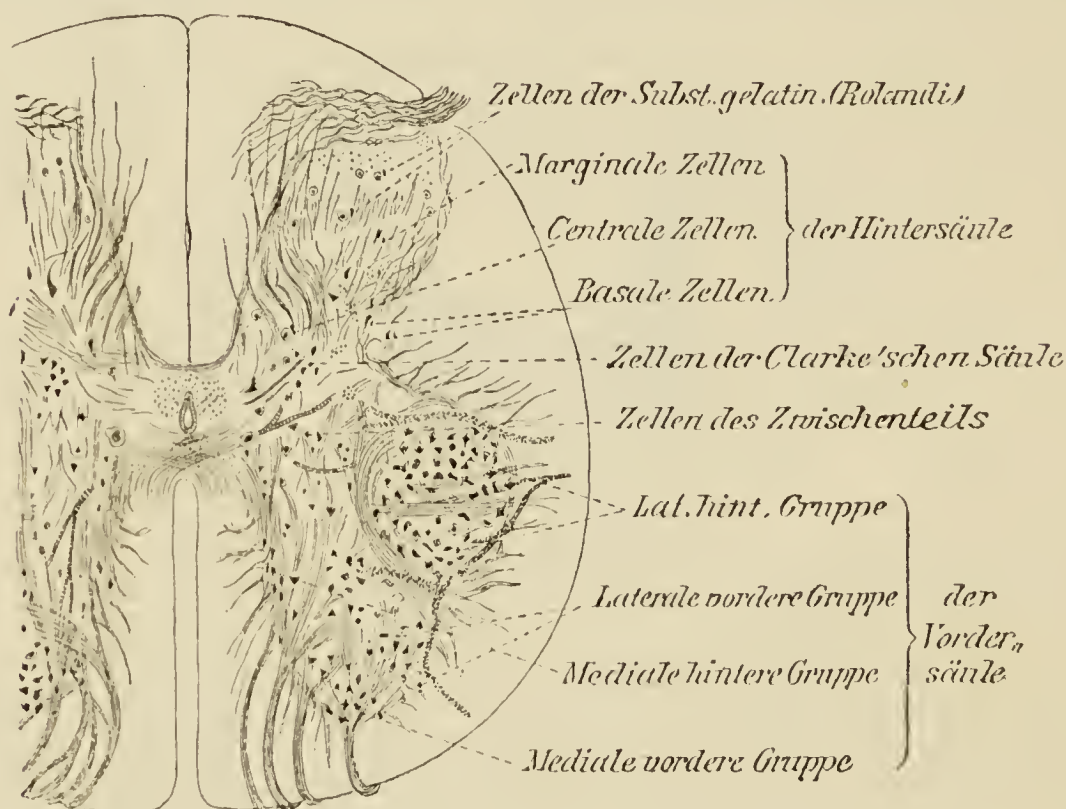 Zellen der Subst. gelatin. (Rolandi)
Marginale Zellen
Centrale Zellen
Basale Zellen
der Hintersäule
Zellen der Clarke'schen Säule
Zellen des Zwischenteils
Lat. hint. Gruppe
Laterale vordere Gruppe
Mediale hintere Gruppe
Mediale vordere Gruppe
der
Vorder„
säule